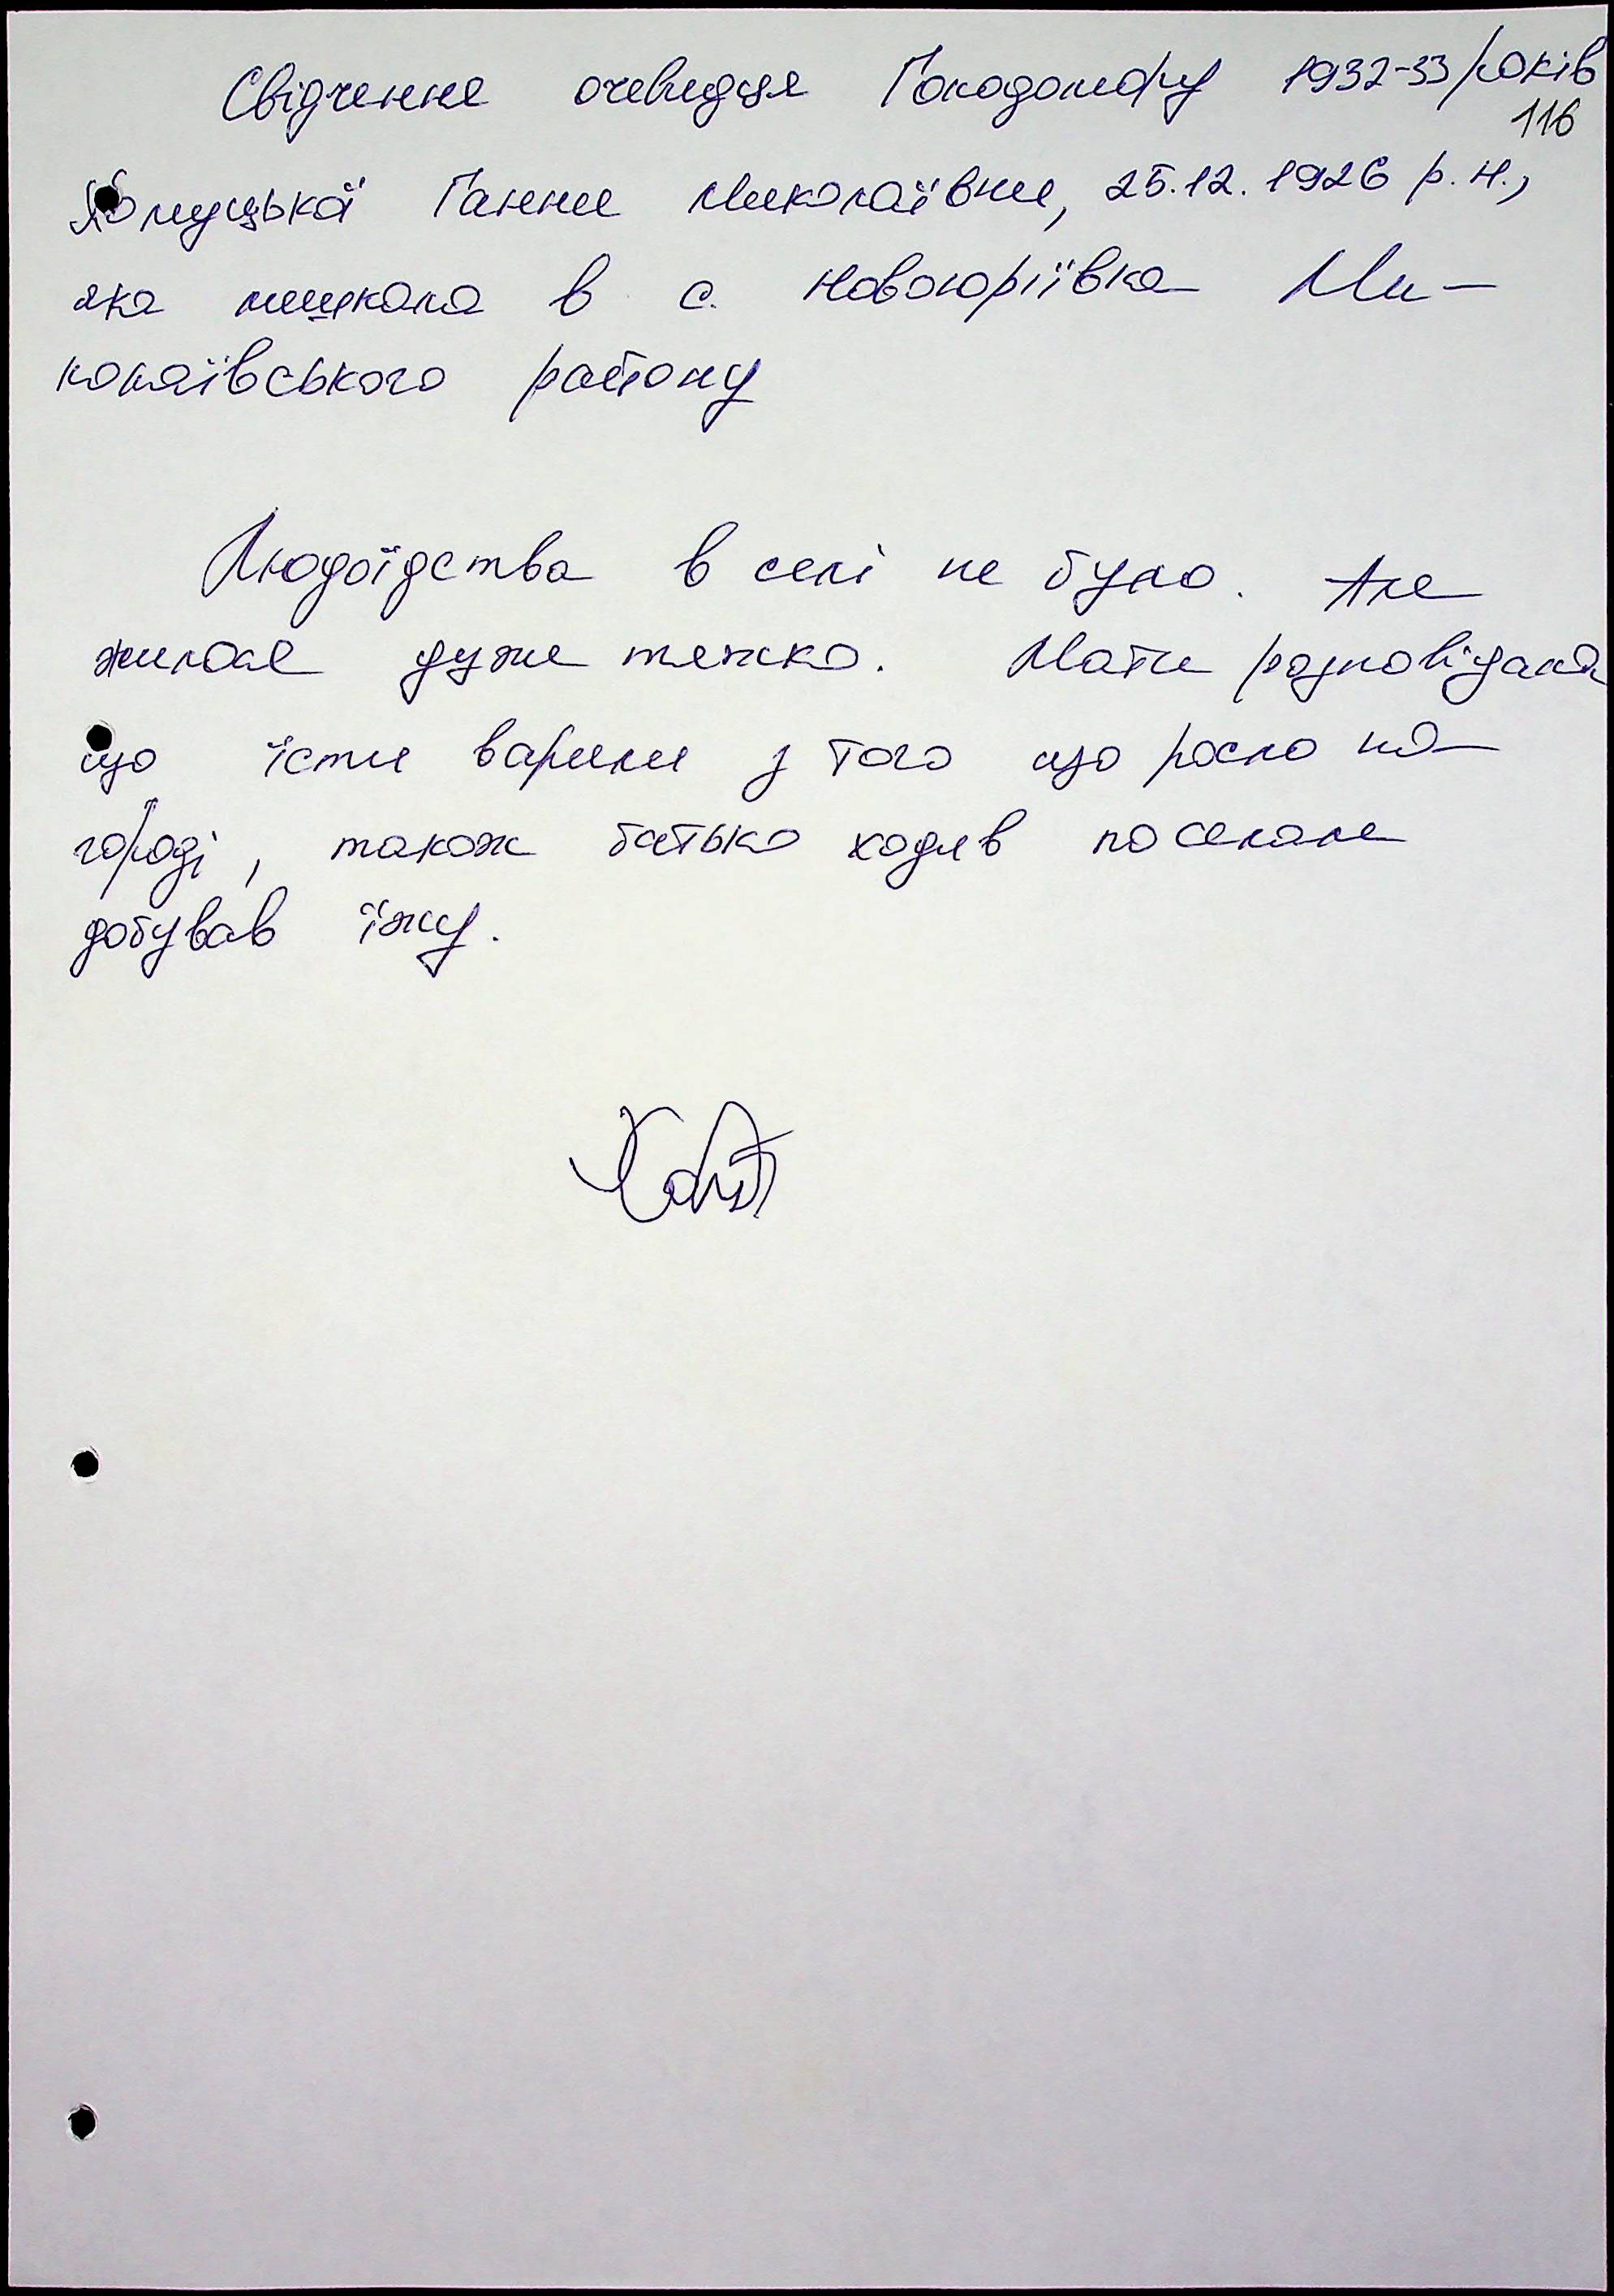 Свідчення очевидця Голодомору 1932-33 років
116
Хомуцької Ганни Миколаївни, 25.12.1926 р.н.,
яка мешкала в с. Новоюріївка Ми-
колаївського району
Людоїдства в селі не було. Але
жилося дуже тяжко. Мати розповідала
що їсти варили з того що росло на
городі, також батько ходив по селам
добував їжу.